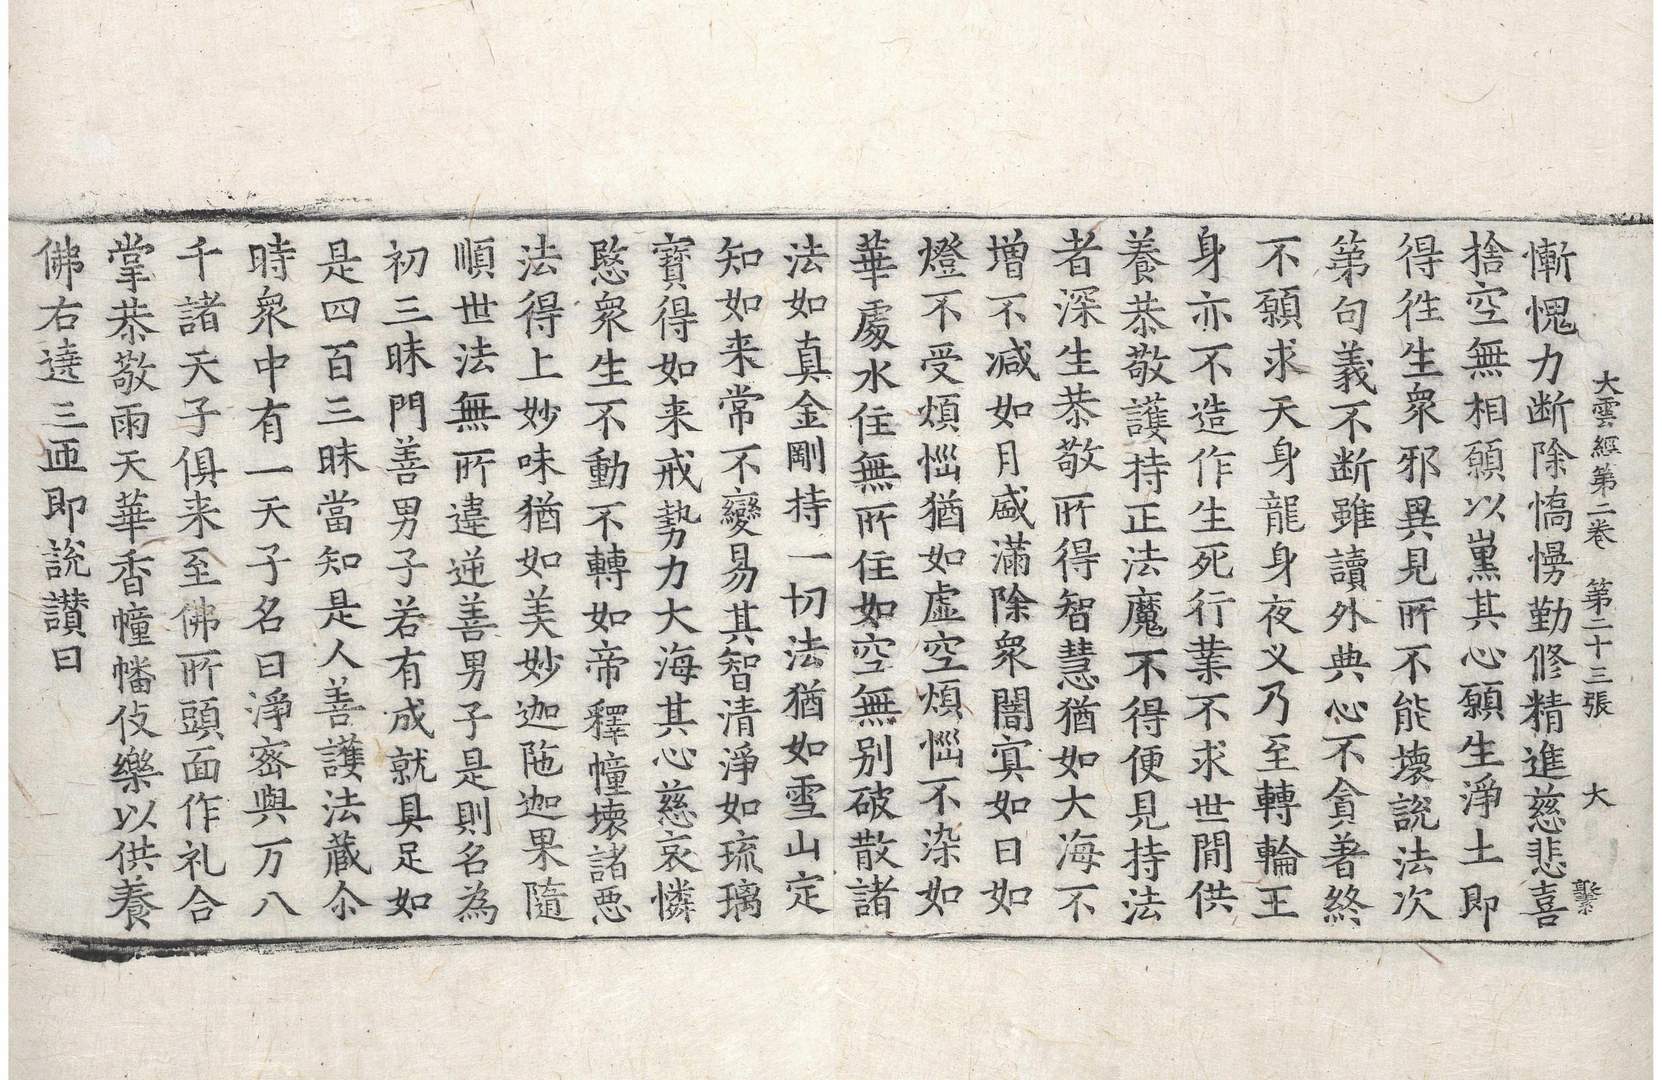 大雲經第二卷　第二十三張　大　䥣
慚愧力断除憍慢勤修精進慈悲喜
捨空無相願以熏其心願生淨土即
得徃生衆邪異見所不能壞說法次
第句義不断雖讀外典心不貪著終
不願求天身龍身夜义乃至轉輪王
身亦不造作生死行業不求世間供
養恭敬護持正法魔不得便見持法
者深生恭敬所得智慧猶如大海不
增不减如月盛滿除衆闇冥如日如
燈不受煩惱猶如虛空煩惱不染如
華處水住無所住如空無別破散諸
法如真金剛持一切法猶如雪山定
知如来常不變易其智清淨如琉璃
寶得如来戒勢力大海其心慈哀憐
愍衆生不動不轉如帝釋幢壞諸惡
法得上妙味猶如美妙迦陁迦果隨
順世法無所違逆善男子是則名為
初三昧門善男子若有成就具足如
是四百三昧當知是人善護法藏尒
時衆中有一天子名曰淨密與万八
千諸天子俱来至佛所頭面作礼合
掌恭敬雨天華香幢幡伎樂以供養
佛右遶三匝即說讃曰